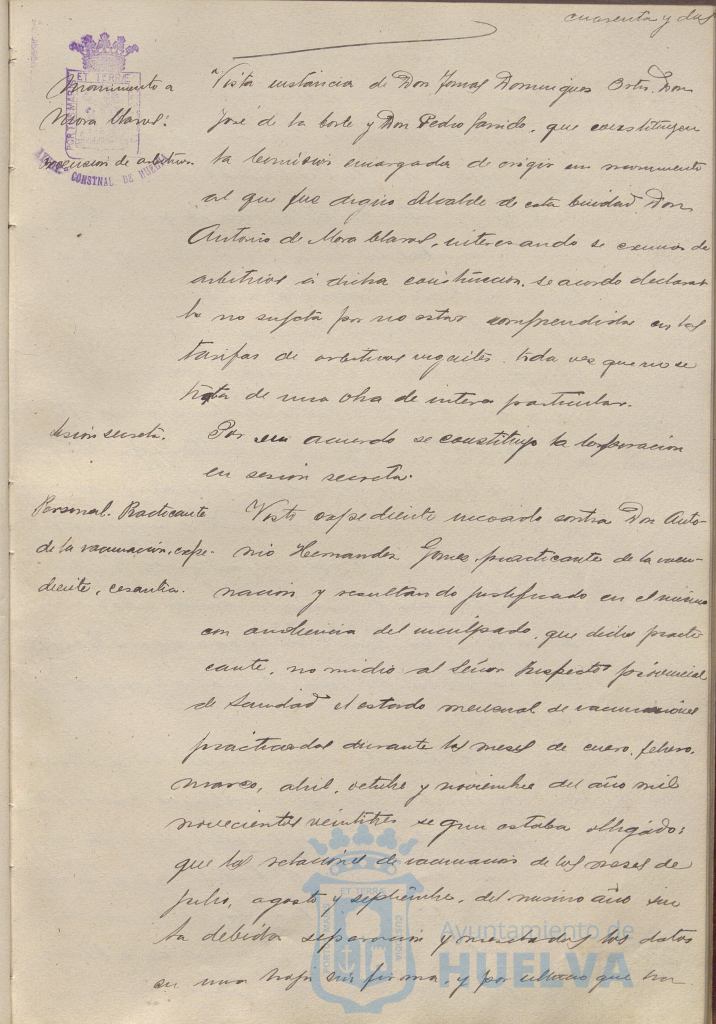 cuarenta y dos
Monumento a
Mora Claros:
exención de arbitrios.
ET TERRÆ
PORTUS MARIS
CONSTNAL DE HUELVA
Vista instancia de Don Tomas Dominguez Ortiz, Don
José de la Corte y Don Pedro Garrido, que constituyen
la Comision encargada de erigir un monumento
al que fué digno Alcalde de esta Ciudad Don
Antonio de Mora Claros, interesando se exima de
arbitrios á dicha construccion, se acordó declarar
la no sujeta por no estar comprendida en las
tarifas de arbitrios vigentes, toda vez que no se
trata de una obra de interes particular.
Sesión secreta.
Por su acuerdo se constituyó la Corporación
en sesión secreta.
Personal. Practicante
de la vacunación, expe-
diente, cesantia.
Visto expediente incoado contra Don Anto-
nio Hernandez Gomez, practicante de la vacu-
nación y resultando justificado en el mismo
con audiencia del inculpado, que dicho practi
cante, no al Señor Inspector provincial
de Sanidad el estado mensual de vacunaciones
practicadas durante los meses de enero, febrero
marzo, abril, octubre y noviembre del año mil
novecientos veintitres segun estaba obligado:
que las relaciones de vacunacion de los meses de
julio, agosto y septiembre, del mismo año sin
la debida separacion y mezclados los datos
en una hoja sin firma, y por ultimo que ha
ET TERRÆ
PORTUS MARIS
CUSTODIA
Ayuntamiento de
HUELVA